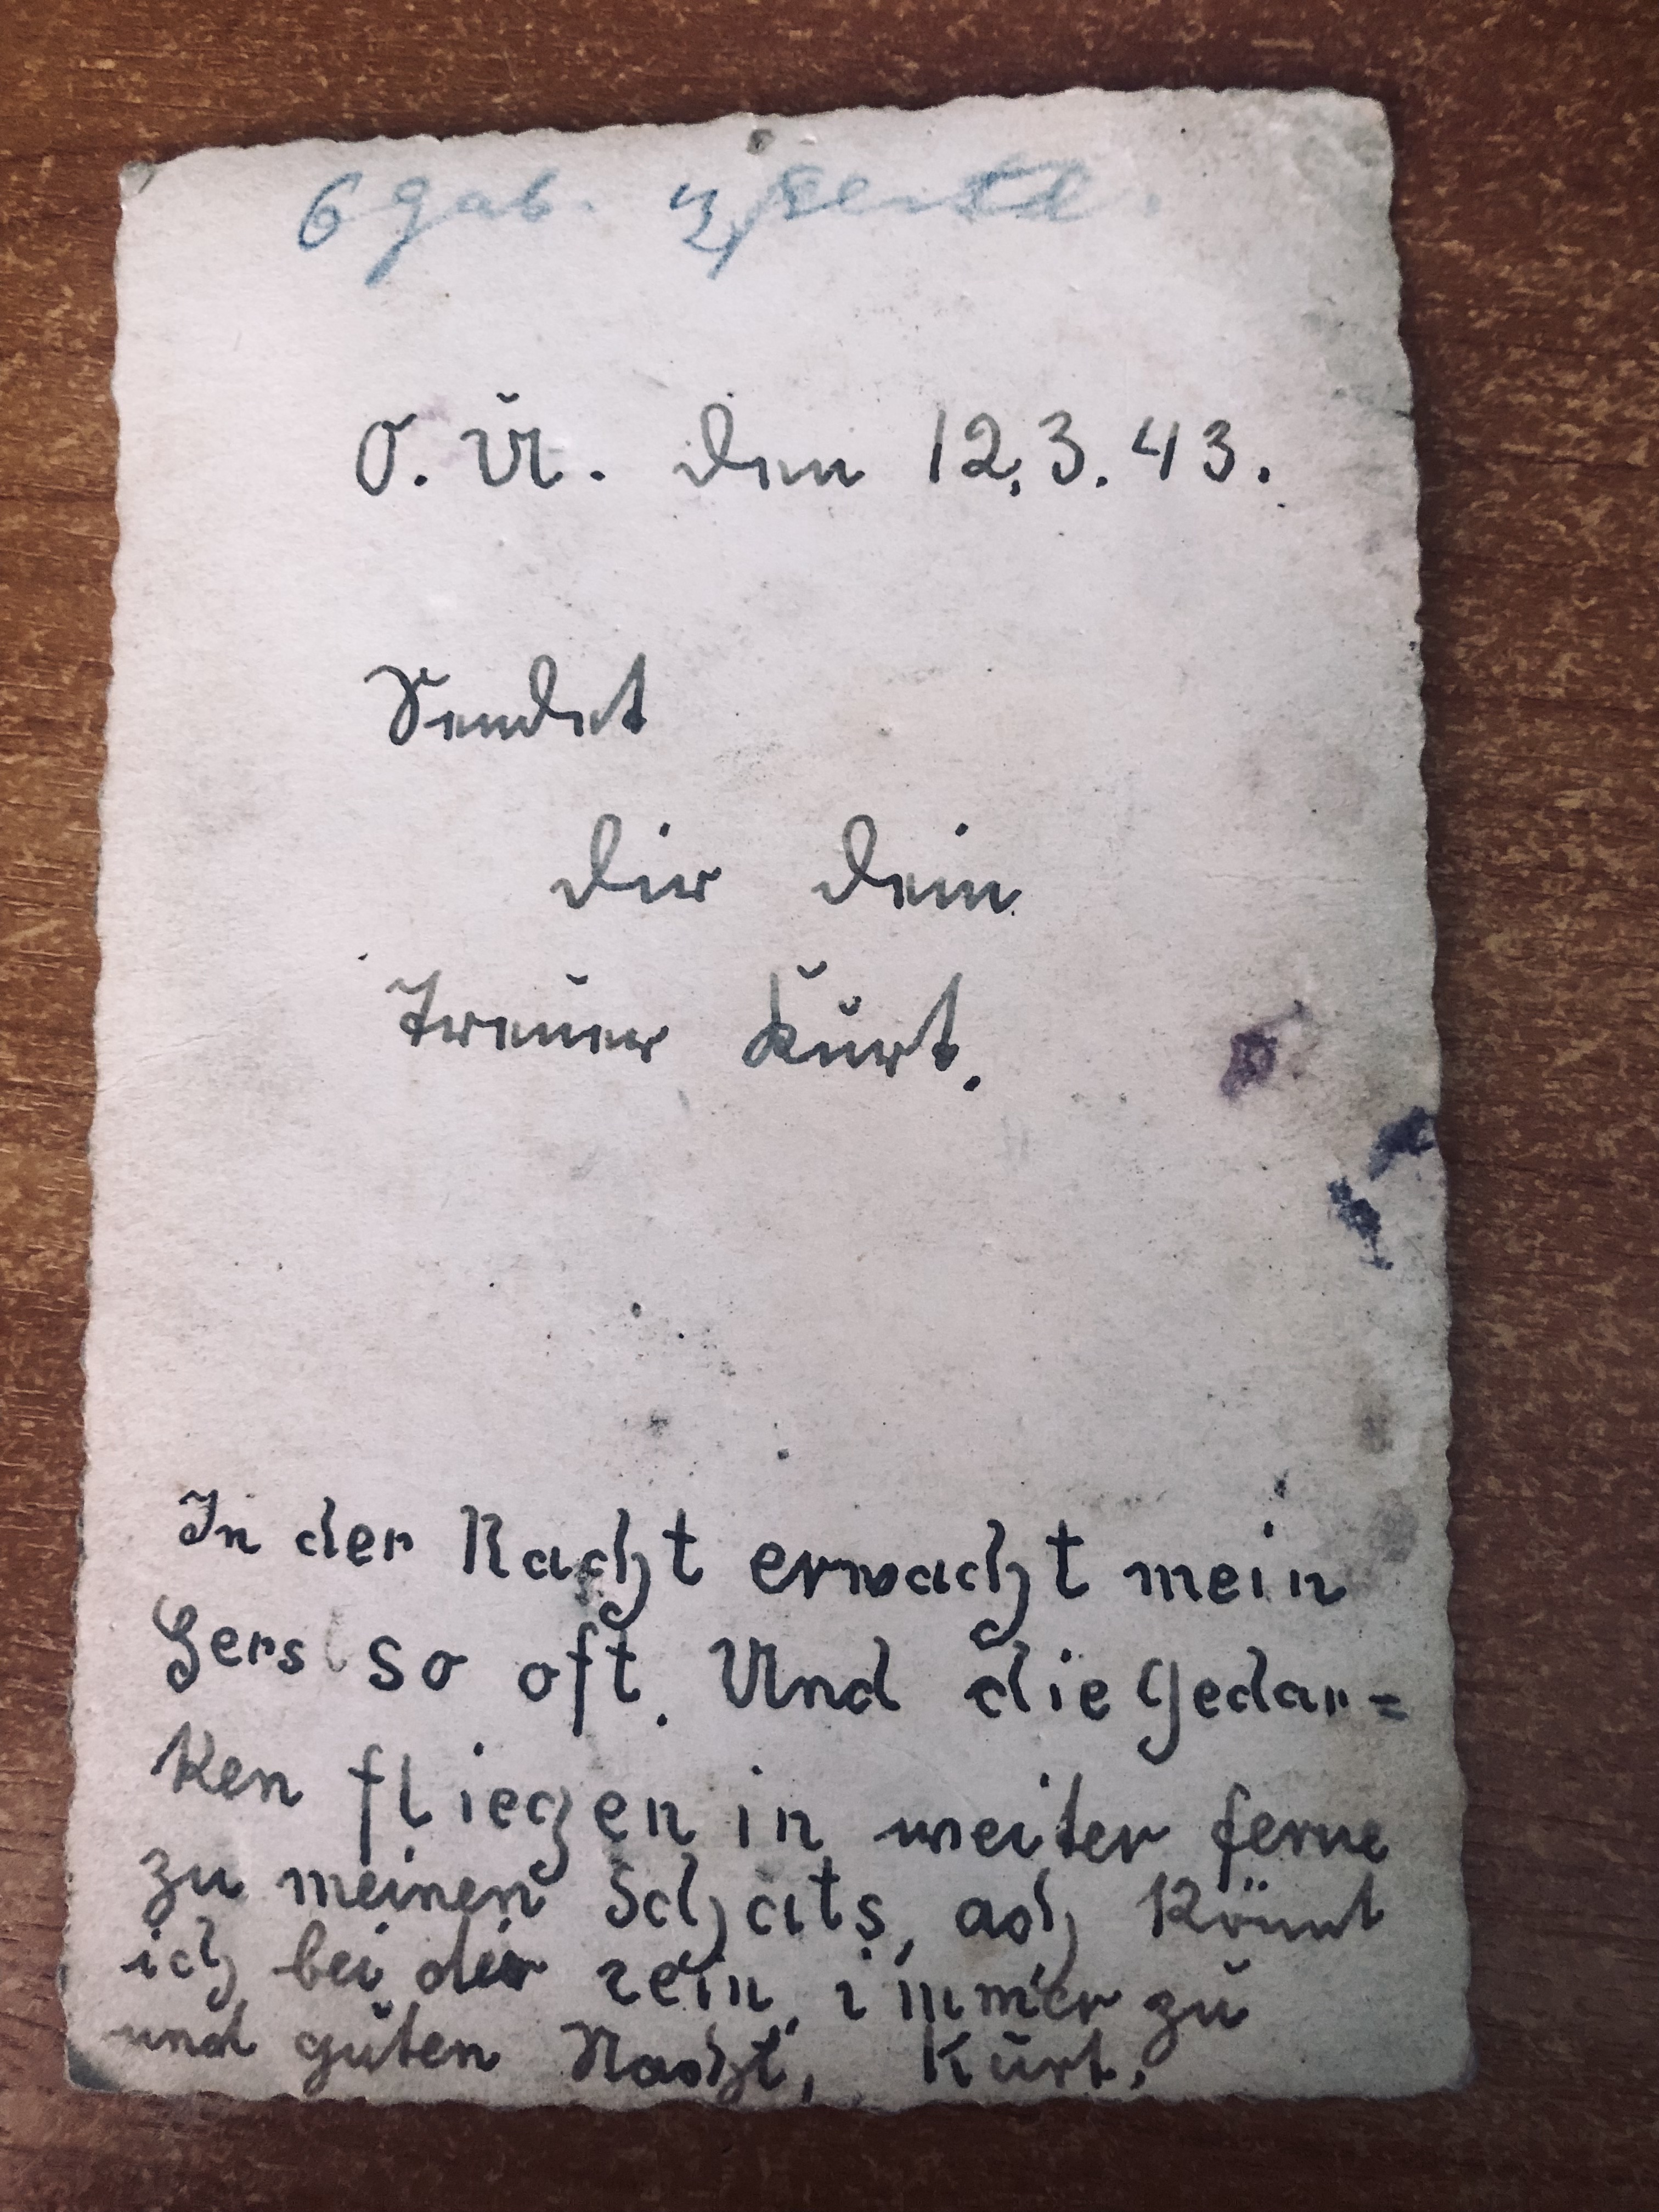 6 gab.
O. U. den 12.3.43.
Sendet
dir dein
Treuer Kurt.
In der Nacht erwacht mein
Hers so oft. Und die Gedan=
ken fliegen in weiter ferne
zu meinen Schats, ach könnt
ich bei dir sein, immer zu
und guten Nacht, Kurt.